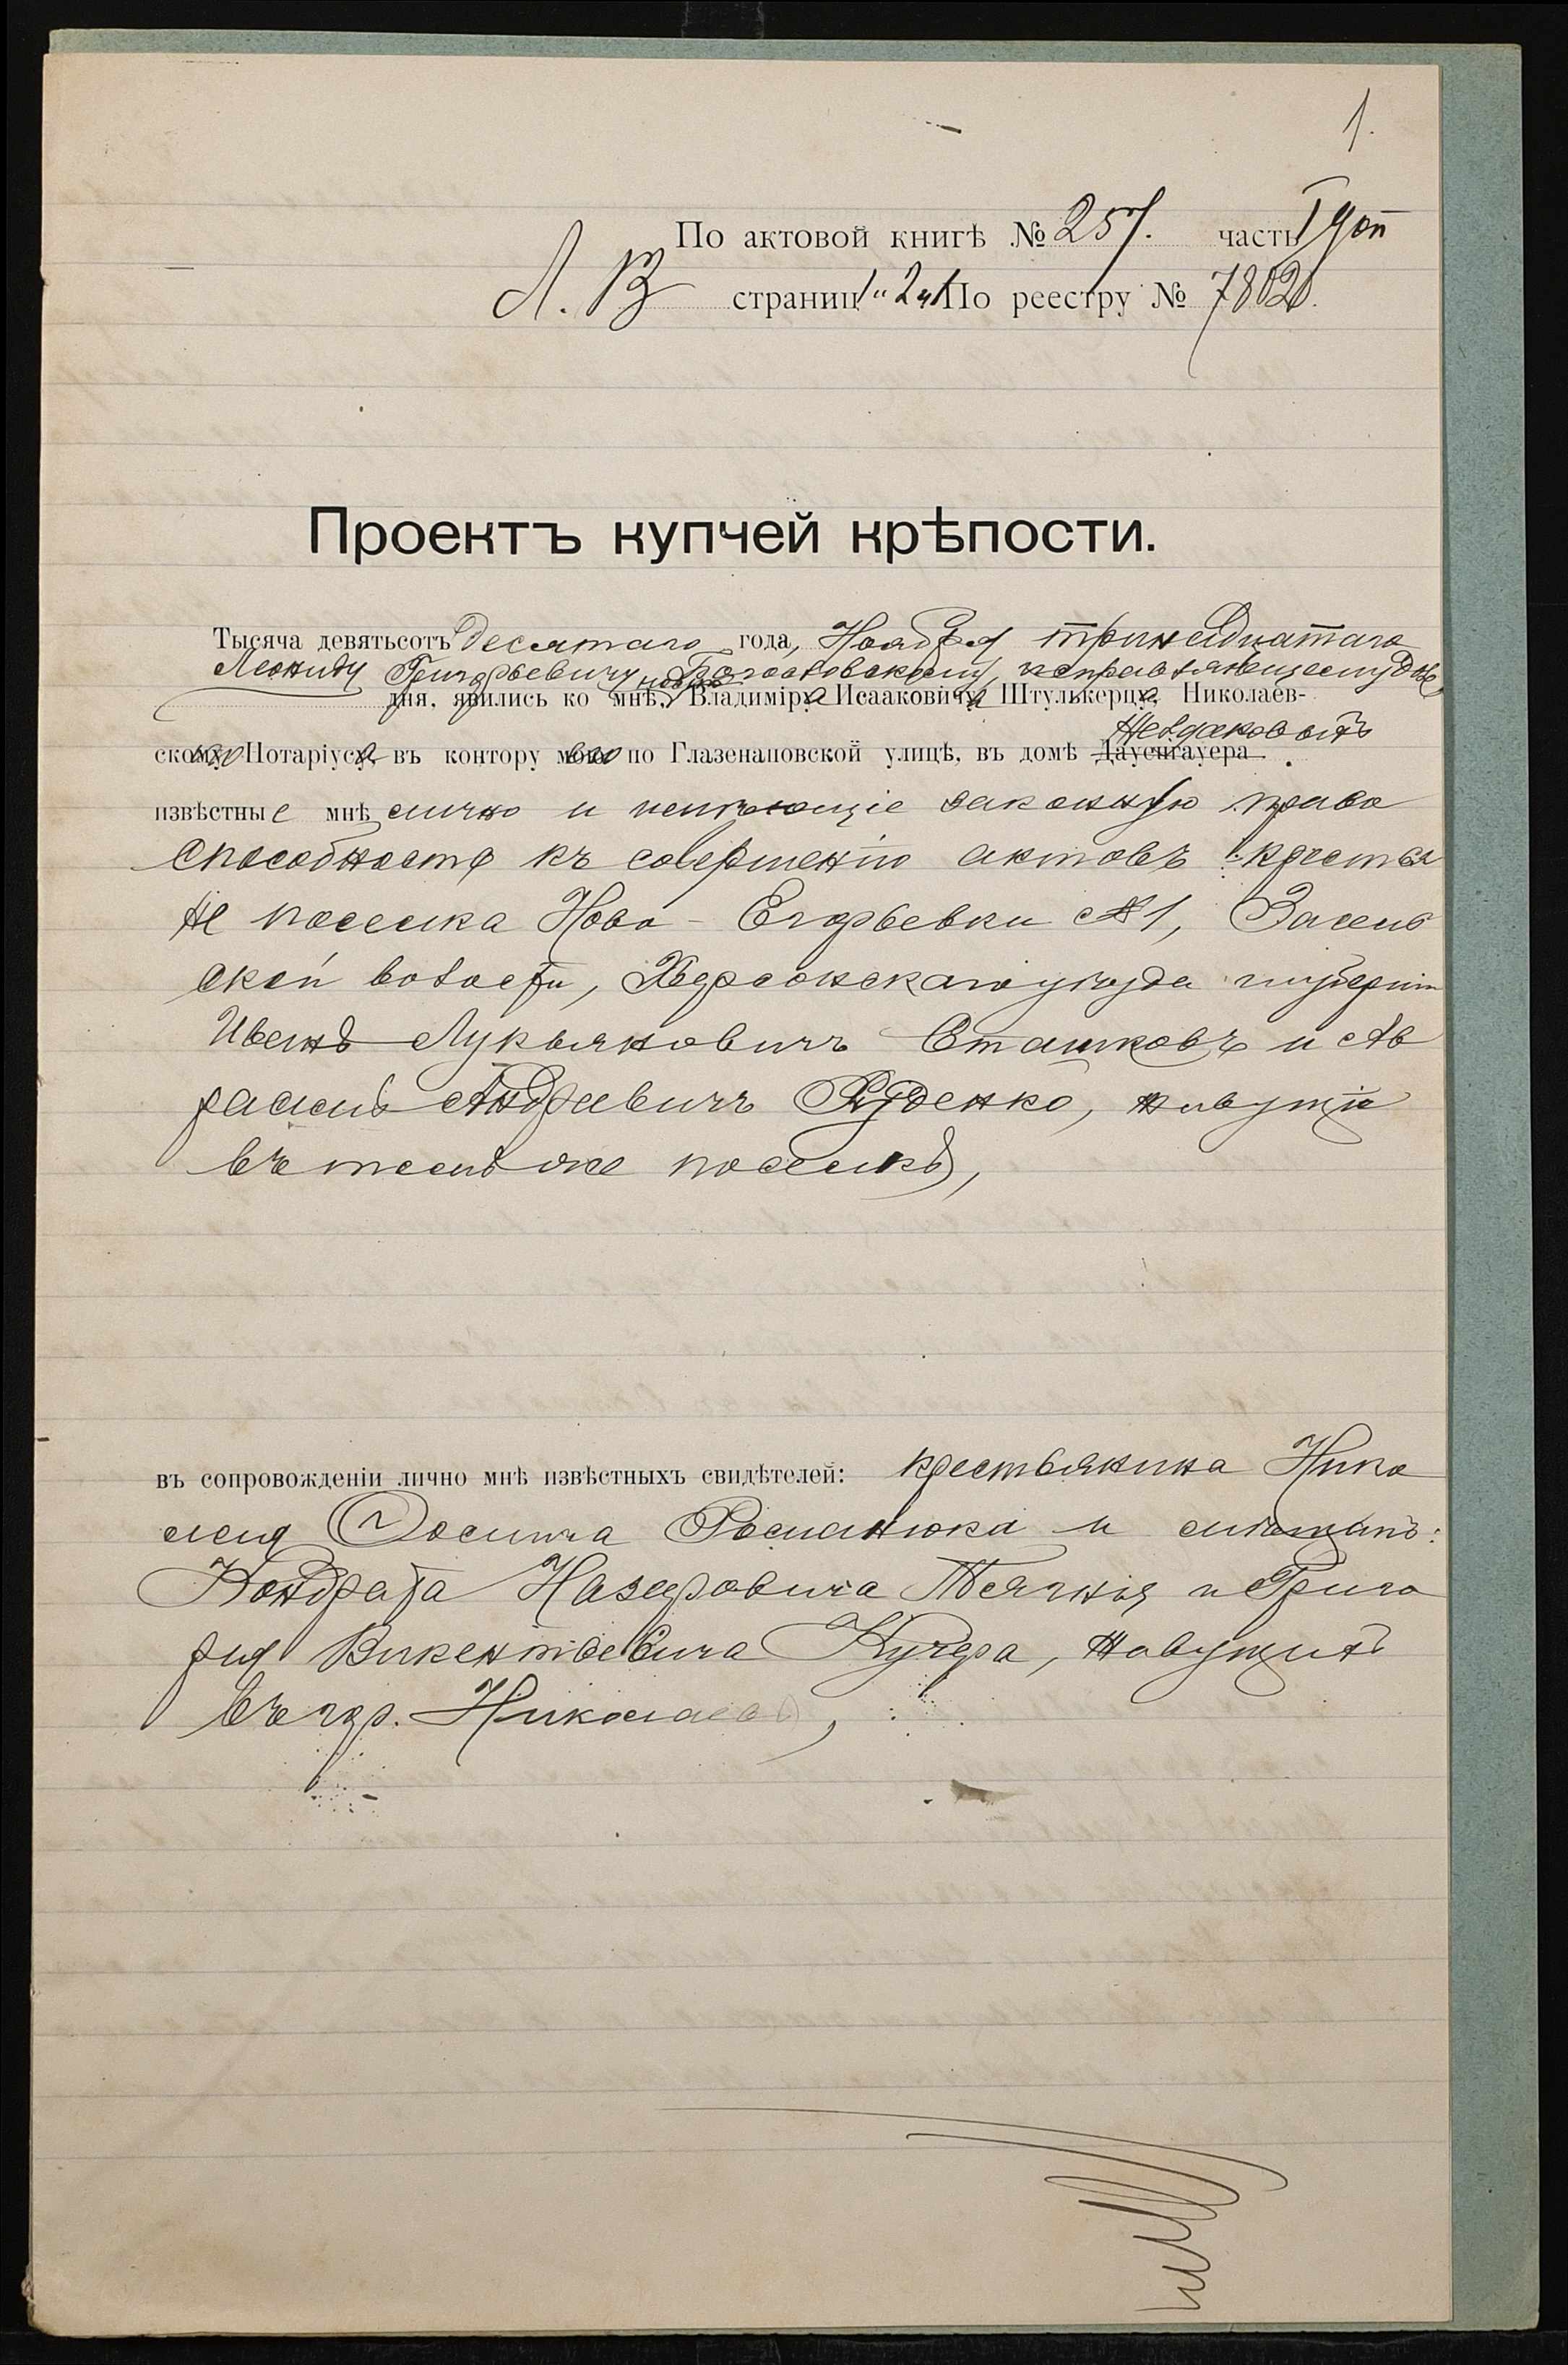 1.
По актовой книгѣ № 257. часть I доп
Л. В страниц 1 и 2 По реестру № 7802.
Проектъ купчей крѣпости.
Тысяча девятьсотъ десятаго года, Ноября тринадцатаго
Леониду Григорьевичу исправляющему долж
дня, явились ко мнѣ, Владиміра Исааковича Штулькерца, Николаев-
скаго Нотаріуса, въ контору его по Глазенаповской улицѣ, въ домѣ Даусенгауера
извѣстные мнѣ лично и имѣющіе законную право
способность къ совершенію актовъ: крестья
не поселка Ново-Егорьевки № 1, Засель
ской волости, Херсонскаго уѣзда и губерніи
Иванъ Лукьяновичъ Сташковъ и Ав
рамъ Андреевичъ Руденко, живущіе
въ томъ же поселкѣ,
въ сопровожденіи лично мнѣ извѣстныхъ свидѣтелей: крестьянина Нико
лая Романюка и мѣщанъ:
Кондрата Назаровича и Григо
рія Викентьевича Кучера, живущихъ
въ гор. Николаевѣ,